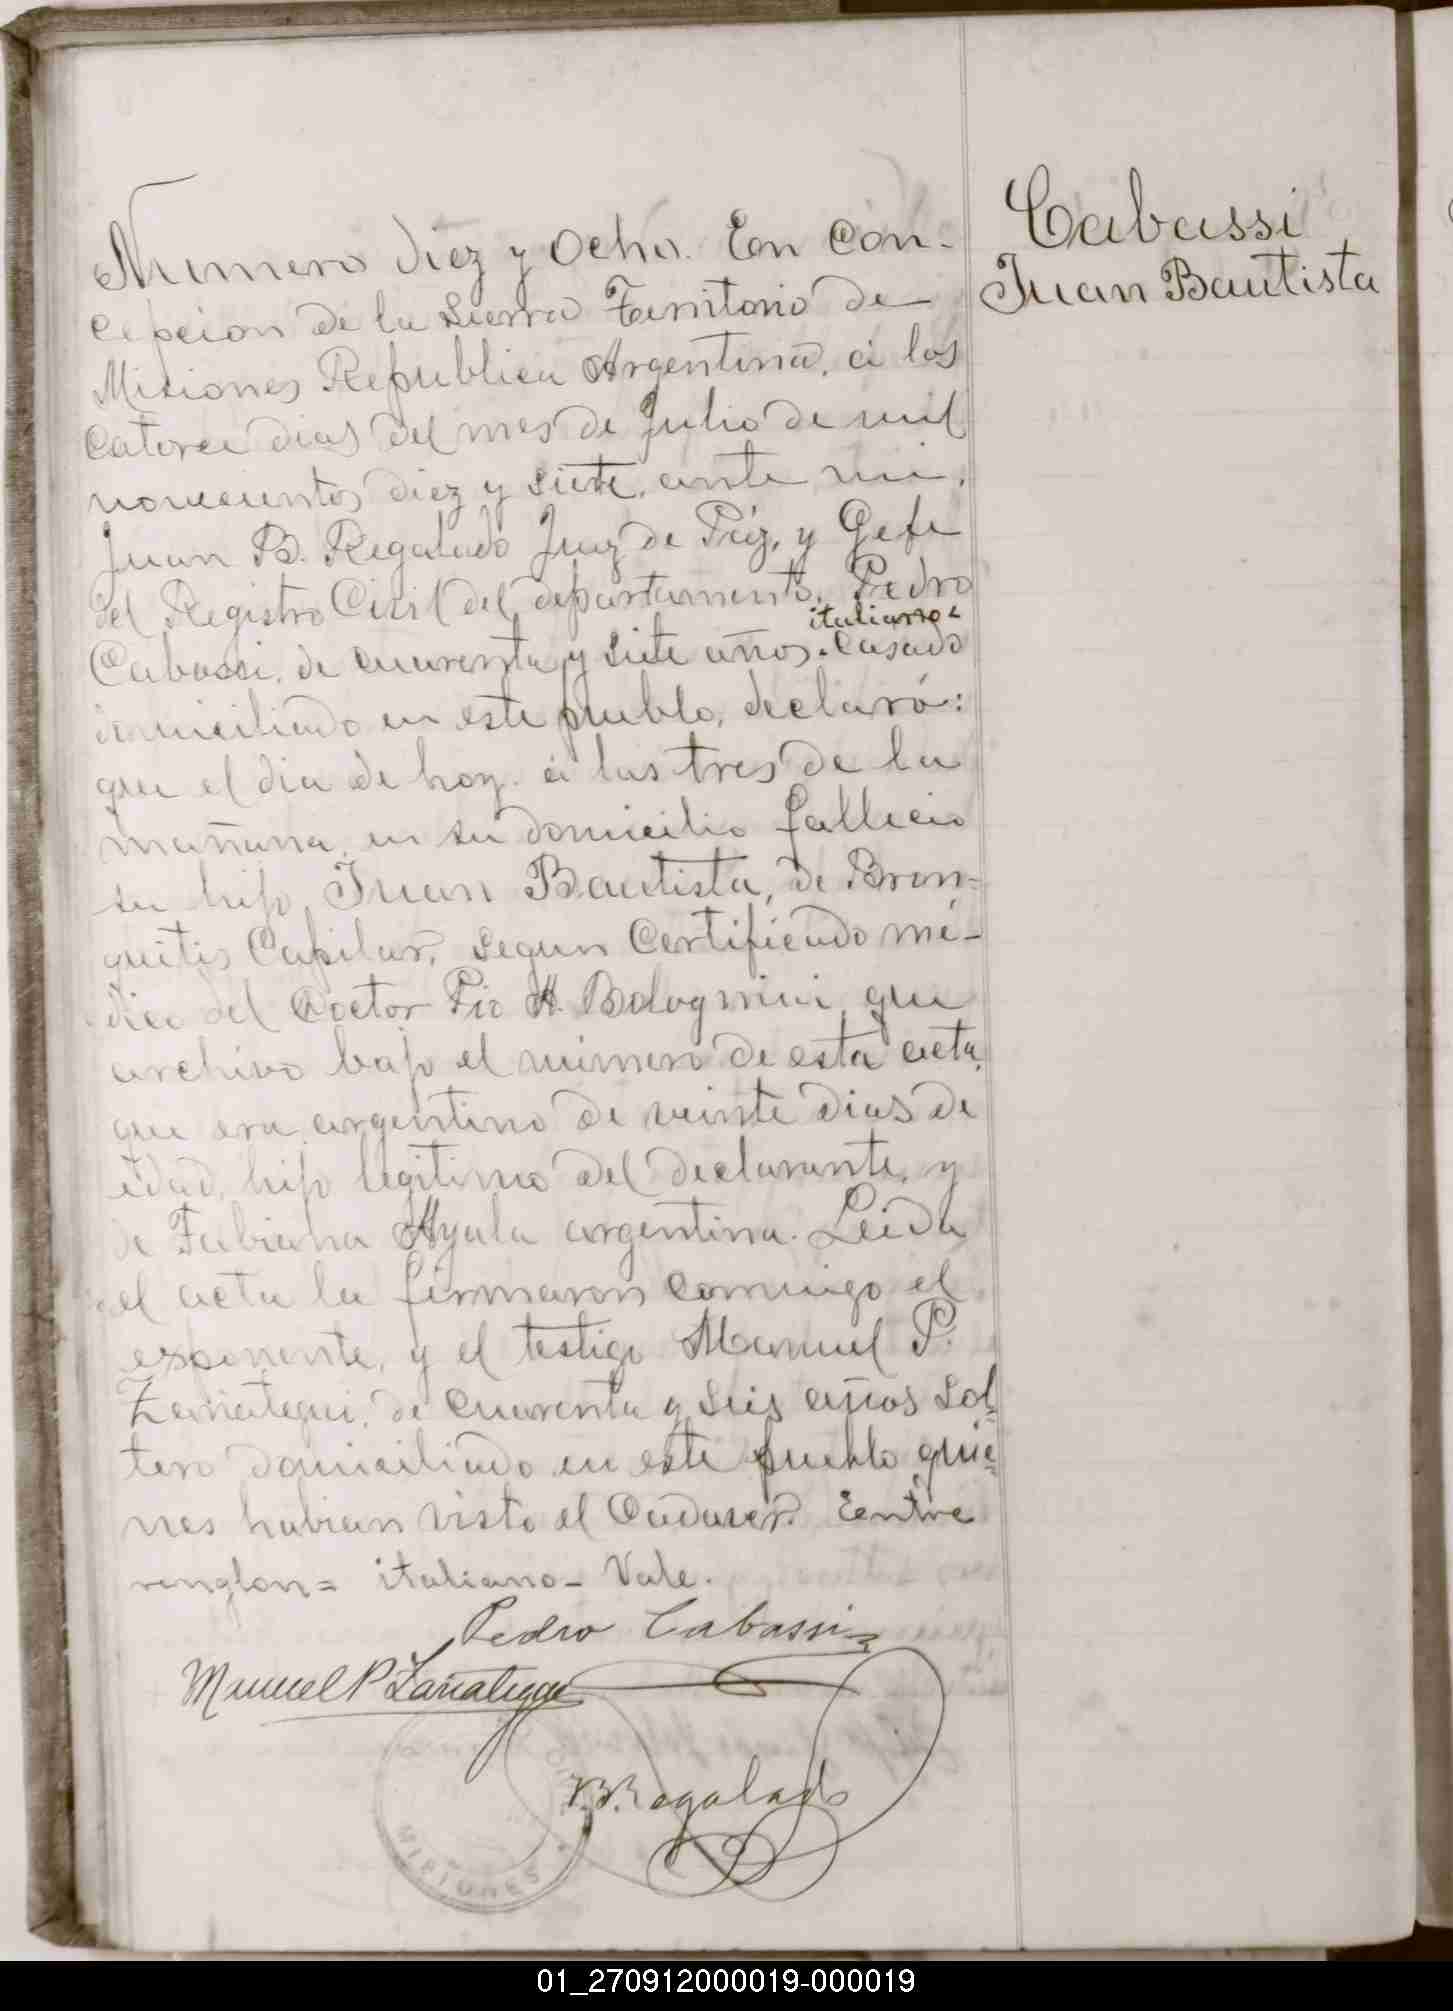 Cabassi
Juan Bautista
Numero diez y Ocho. En Con-
cepcion de la Sierra Territorio de
Misiones Republica Argentina, á los
catorce dias del mes de Julio de mil
novecientos diez y siete, ante mi,
Juan B. Regalado Juez de Páz, y Gefe
del Registro Civil del departamento, Pedro
italiano-
Cabassi, de cuarenta y siete años. casado
domiciliado en este pueblo, declaró:
que el dia de hoy á las tres de la
mañana, en su domicilio fallecio
su hijo, Juan Bautista, de Bron-
quitis Capilar, segun Certificado mé-
dico del Doctor Pio A. Bolognini que
archivo bajo el numero de esta acta,
que era argentino de veinte dias de
edad, hijo legitimo del declarante, y
de Fabiana Ayala argentina. Leida
el acta la firmaron conmigo el
exponente, y el testigo Manuel P.
Zañategui, de cuarenta y seis años sol-
tero domiciliado en este pueblo quie-
nes habian visto el Cadaver. Entre
renglon= italiano- Vale.
Pedro Cabassi
Manuel P Zañategui
J.B.Regalado
MISIONES
01_270912000019-000019